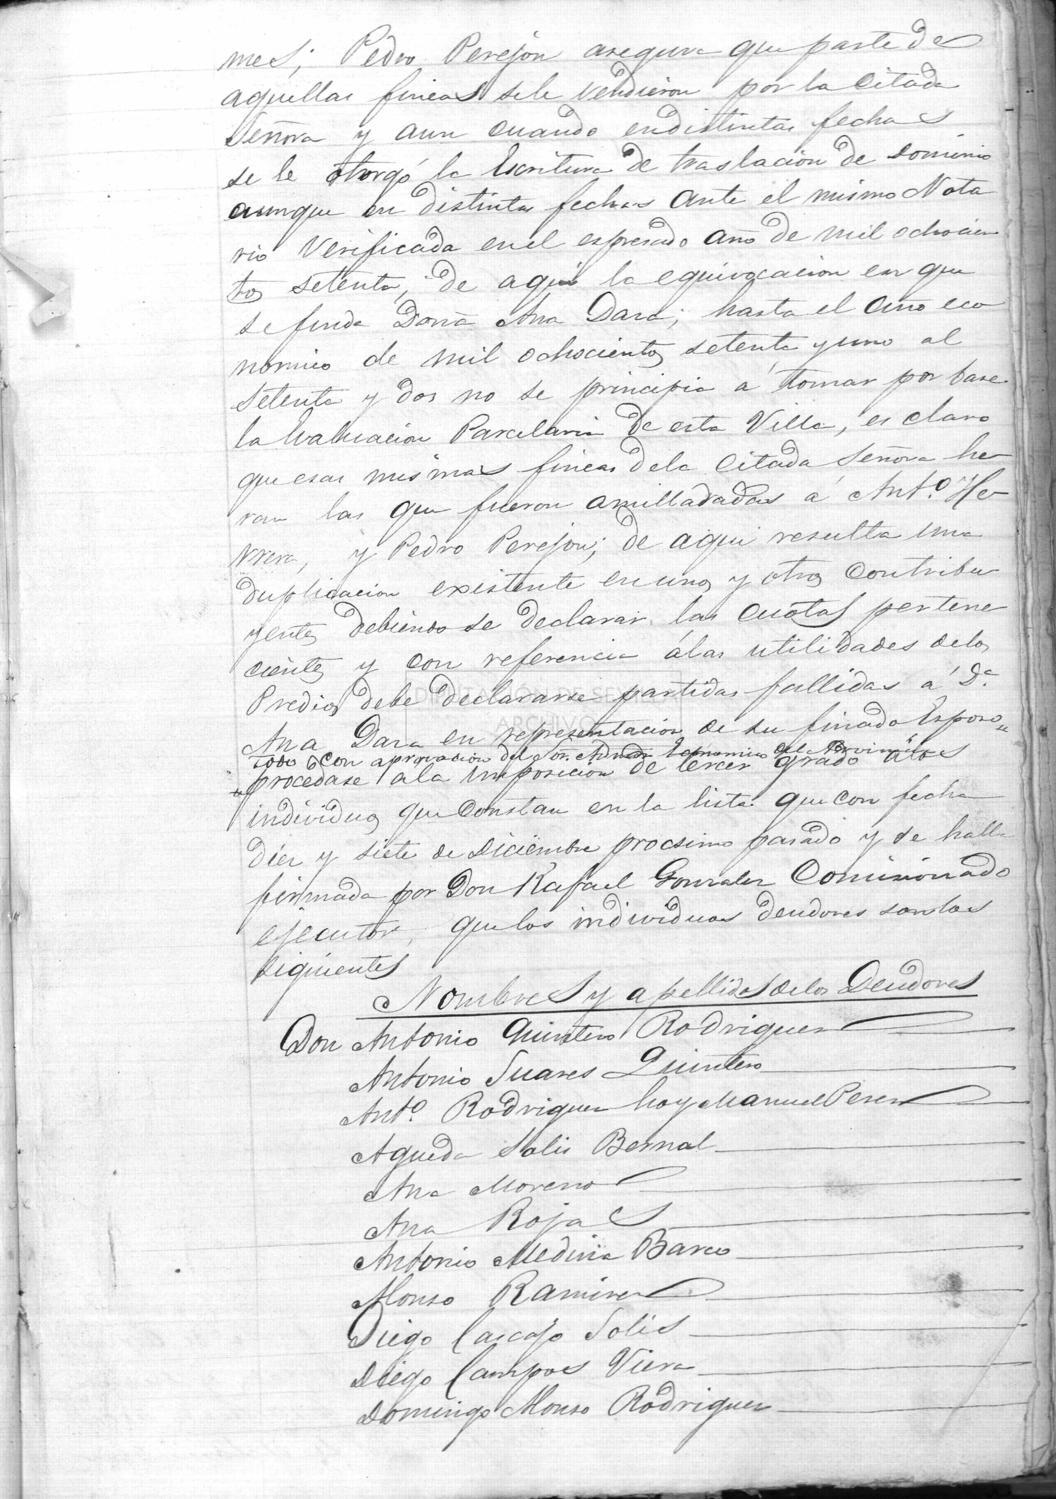 mes; Pedro Perejon asegura que parte de
aquellas fincas se le vendieron por la citada
Señora y aun cuando endistintas fechas
se le otorgó la Escritura de traslacion de dominio
aunque en distintas fechas ante el mismo Nota
rio verificada en el espresado año de mil ochocien
tos setenta, de aqui la equivocacion en que
se funda Doña Ana Dara; hasta el año eco
nomico de mil ochocientos setenta y uno al
setenta y dos no se principia á tomar por base
la Evaluacion Parcelaria de esta Villa, es claro
que esas mismas fincas dela citada Señora he
ran las que fueron amilladadas á Antº. He
rrera, y Pedro Perejon; de aqui resulta una
duplicacion existente en unos y otros contribu
yentes debiendo se declarar las cuotas pertene
cientes y con referencia álas utilidades delos
Predios debe declararse partidas fallidas á Dª.
Ana Dara en representacion de su finado Esposo
todo con aprovacion del Sor. Economico dela Provincia
procedase ala imposicion de tercer grado alos
individuos que constan en la lista que con fecha
diez y siete de Diciembre procsimo pasado y se halla
firmada por Don Rafael Gonzalez Comisionado
ejecutor, que los individuos deudores son los
siguientes
Nombres y apellidos delos Deudores
Don Antonio Quintero Rodriguez
Antonio Suares Quintero
Antº. Rodriguez hoy Manuel Perez
Agueda Solis Bernal
Ana Moreno
Ana Rojas
Antonio Medina Barco
Alonso Ramirez
Diego Cascajo Solis
Diego Campos Viera
Domingo Alonso Rodriguez
DIPUTACIÓN DE SEVILLA
ARCHIVO